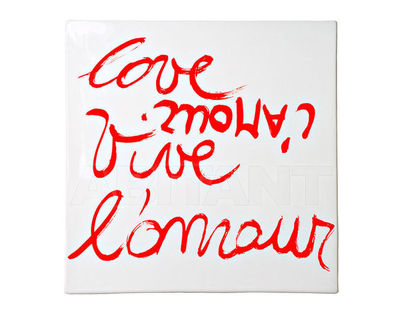 love
L'AMOUR
Vive
ABITANT
l'amour